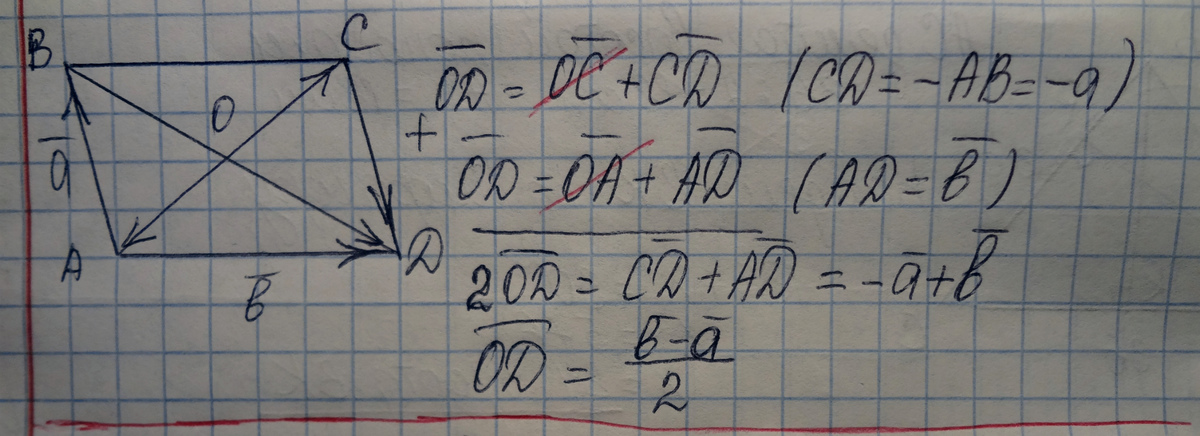 B
C
O
a̅
A
b̅
D
O̅D̅ = O̅C̅ + C̅D̅ (CD = -AB = -a)
+
O̅D̅ = O̅A̅ + A̅D̅ (AD = b̅)
2O̅D̅ = C̅D̅ + A̅D̅ = -a̅ + b̅
O̅D̅ = b̅ - a̅
2